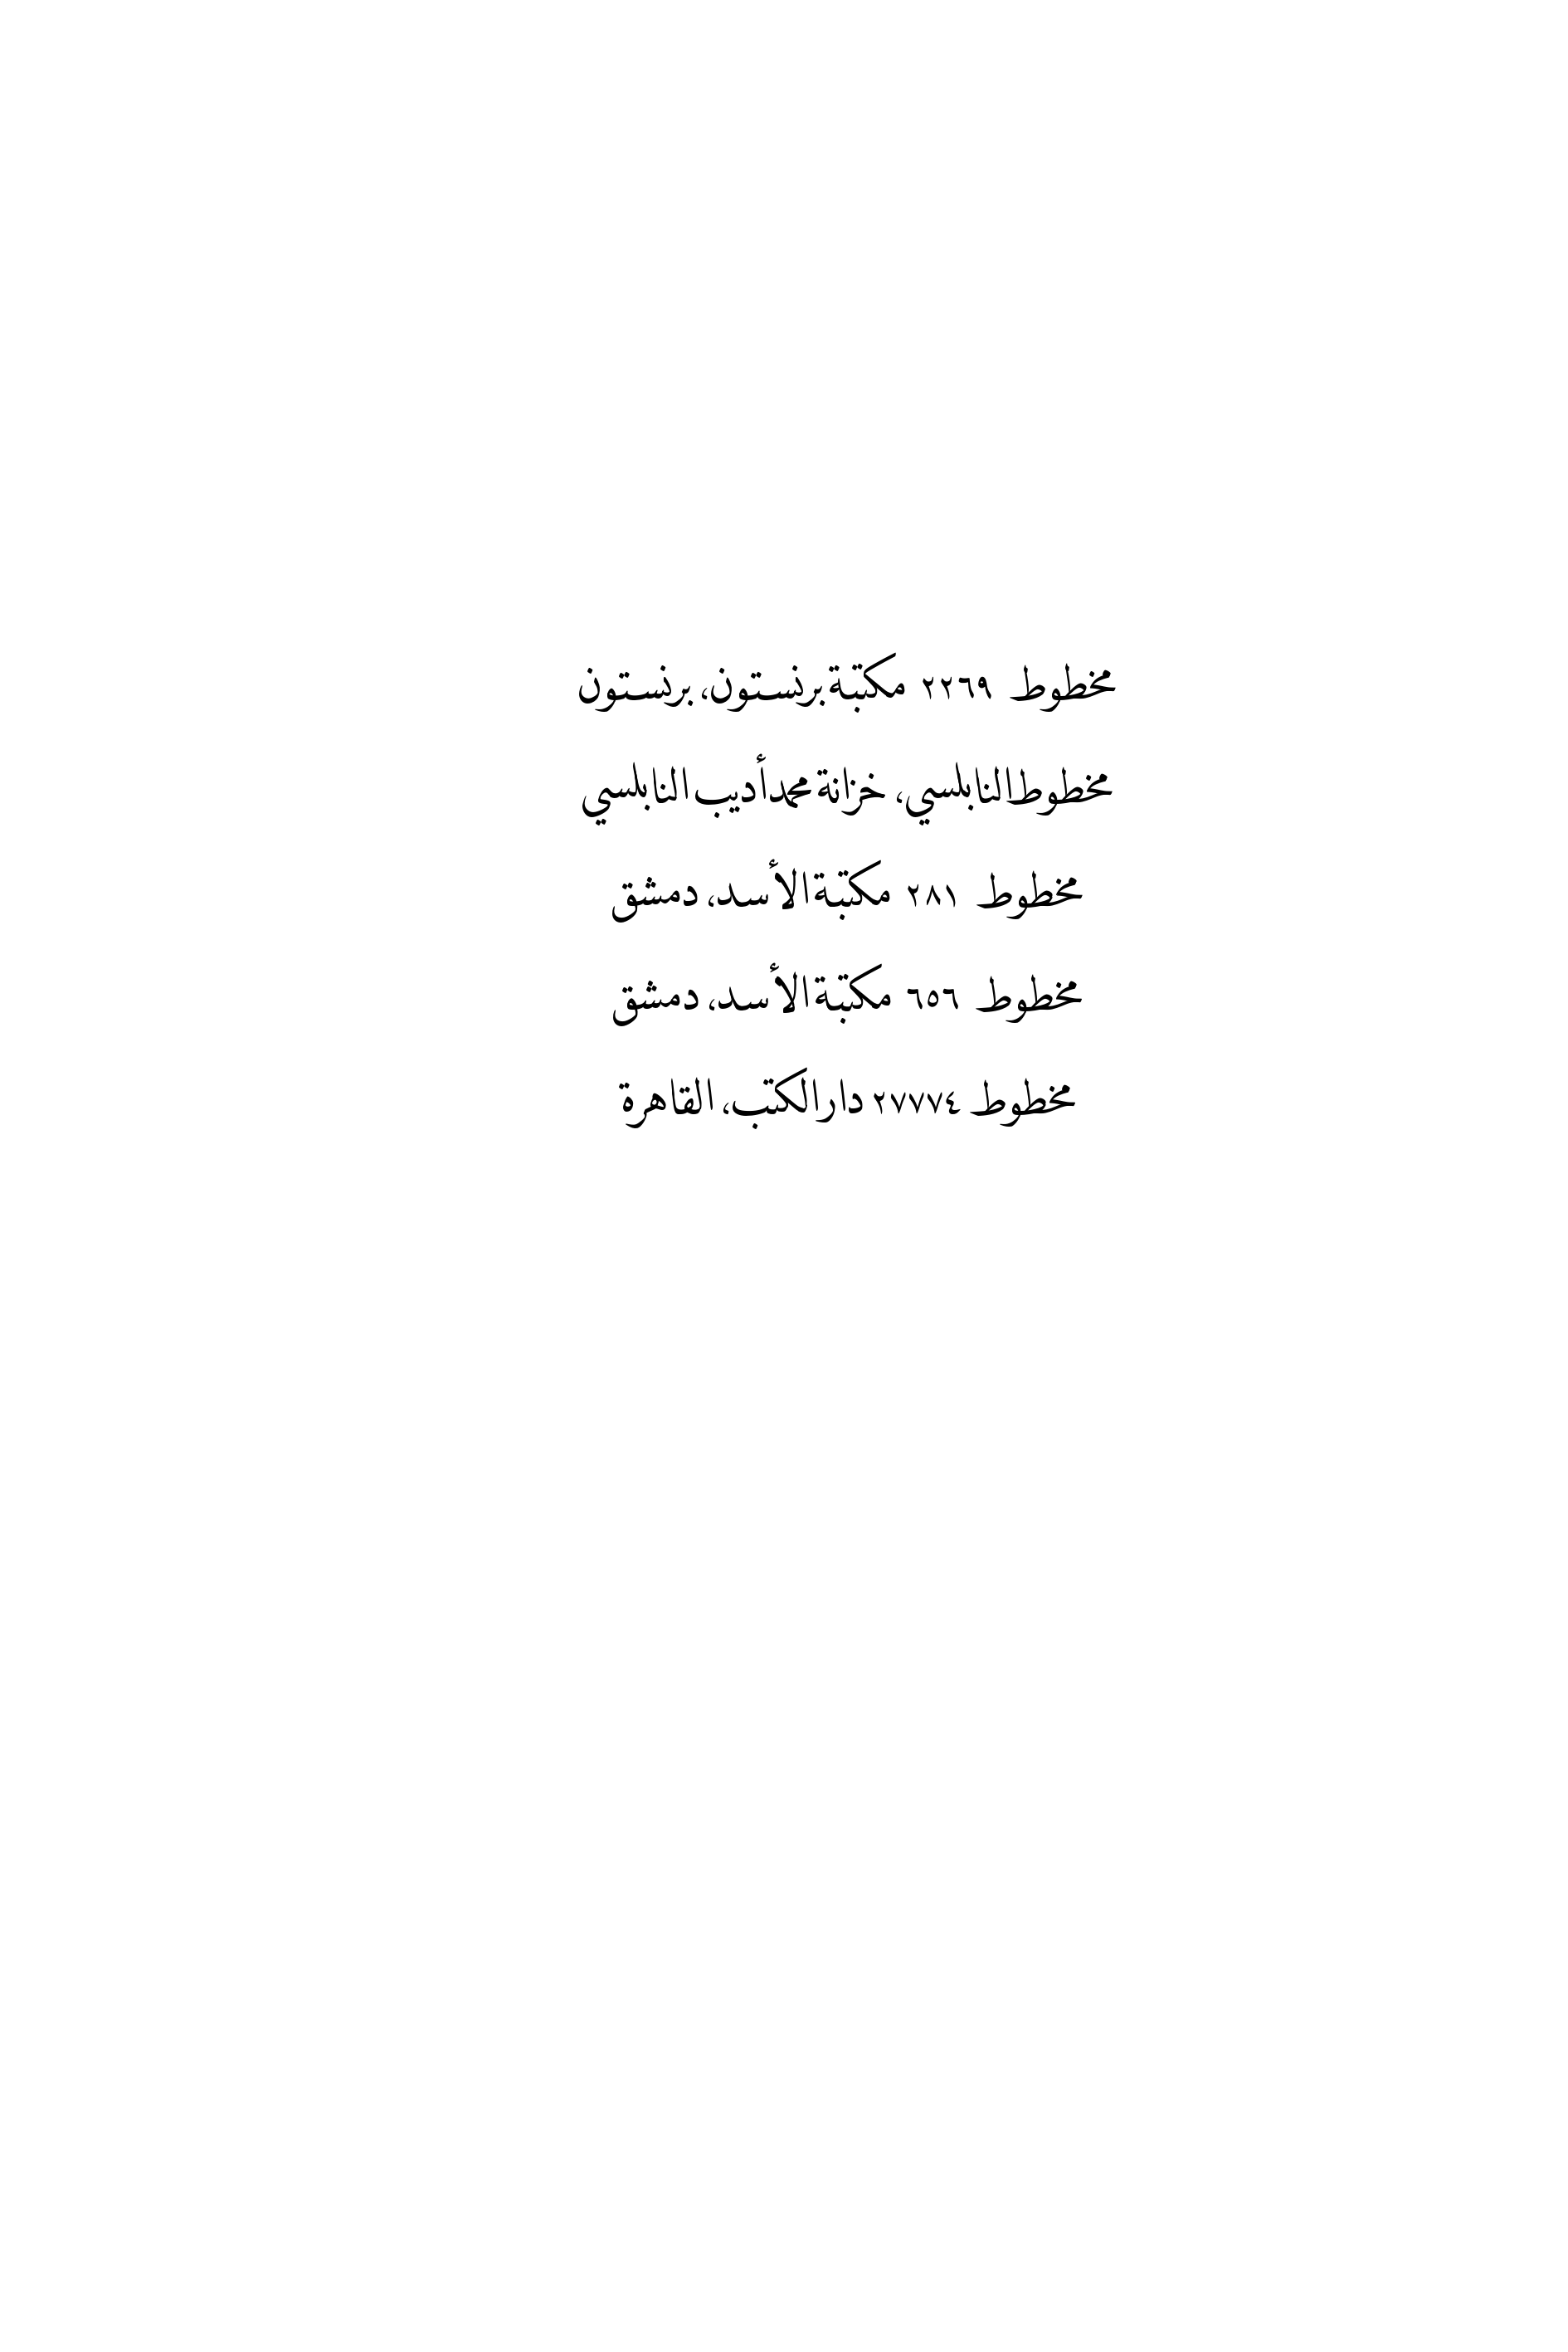 مخطوط ٢٢٦٩ مكتبة برنستون، برنستون
مخطوط النابلسي، خزانة محمد أديب النابلسي
مخطوط ٢٨١ مكتبة الأسد، دمشق
مخطوط ٦٥٦ مكتبة الأسد، دمشق
مخطوط ٢٧٧٤ دار الكتب، القاهرة